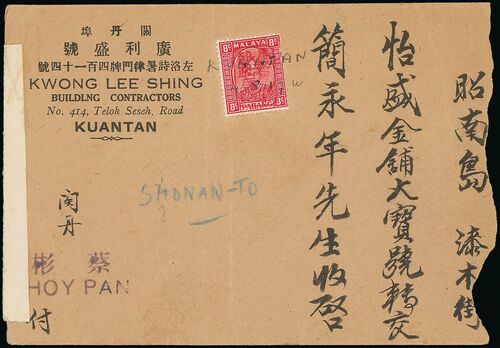 關丹埠
廣利盛號
左洛詩暑律門牌四百一十四號
KWONG LEE SHING
BUILDLNG CONTRACTORS
No. 414, Telok Seseh, Road
KUANTAN
MALAYA
8c 8c
8c PAHANG 8c
KUANTAN
SYONAN-TO
昭南島 漆木街
怡盛金舖大寶號轉交
簡永年先生收啓
関丹
付
彬蔡
HOY PAN